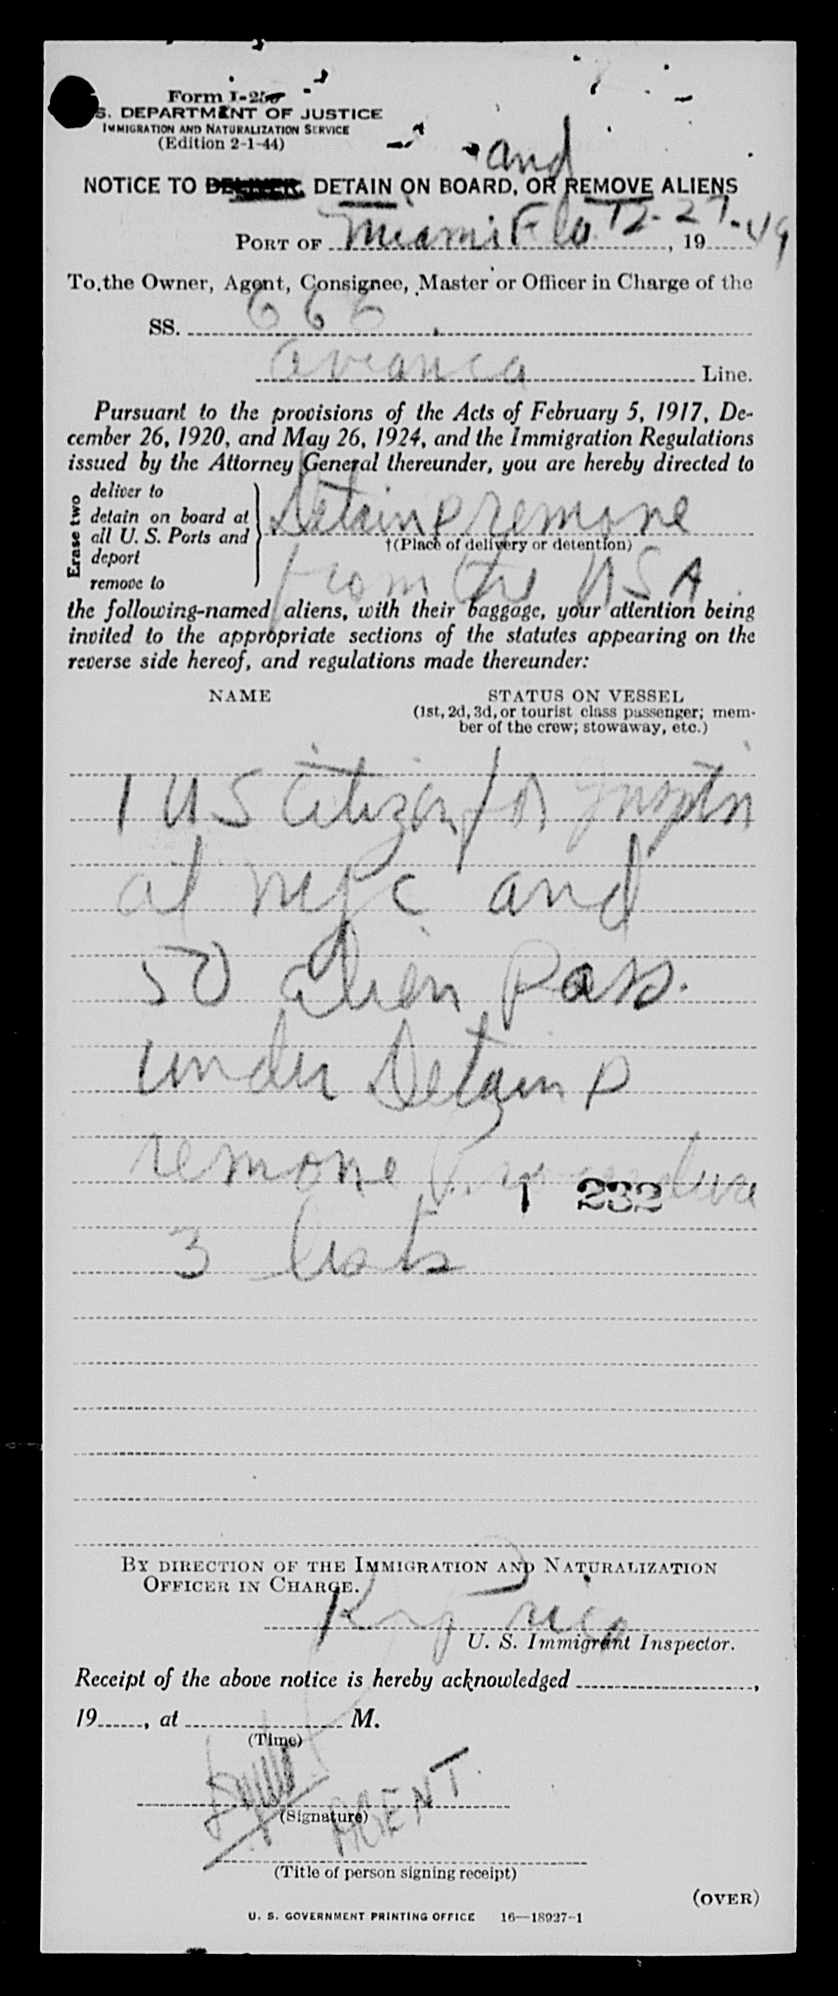 Form I-259
S. DEPARTMENT OF JUSTICE
IMMIGRATION AND NATURALIZATION SERVICE
(Edition 2-1-44)
and
NOTICE TO DELIVER, DETAIN ON BOARD, OR REMOVE ALIENS
PORT OF Miami Fla. 12-27-, 19 49
To the Owner, Agent, Consignee, Master or Officer in Charge of the
SS. 666
Avianca Line.
Pursuant to the provisions of the Acts of February 5, 1917, De-
cember 26, 1920, and May 26, 1924, and the Immigration Regulations
issued by the Attorney General thereunder, you are hereby directed to
Erase two
deliver to
detain on board at
all U. S. Ports and
deport
remove to
Detain & remove
†(Place of delivery or detention)
from the USA
the following-named aliens, with their baggage, your attention being
invited to the appropriate sections of the statutes appearing on the
reverse side hereof, and regulations made thereunder:
NAME STATUS ON VESSEL
(1st, 2d, 3d, or tourist class passenger; mem-
ber of the crew; stowaway, etc.)
1 US Citizen for Insptn
at NYC and
50 alien Pass.
under Detain &
remove Procedure
1 232
3 lists
BY DIRECTION OF THE IMMIGRATION AND NATURALIZATION
OFFICER IN CHARGE.
U. S. Immigrant Inspector.
Receipt of the above notice is hereby acknowledged ,
19 , at M.
(Time)
(Signature)
AGENT
(Title of person signing receipt)
(OVER)
U. S. GOVERNMENT PRINTING OFFICE 16—18927-1